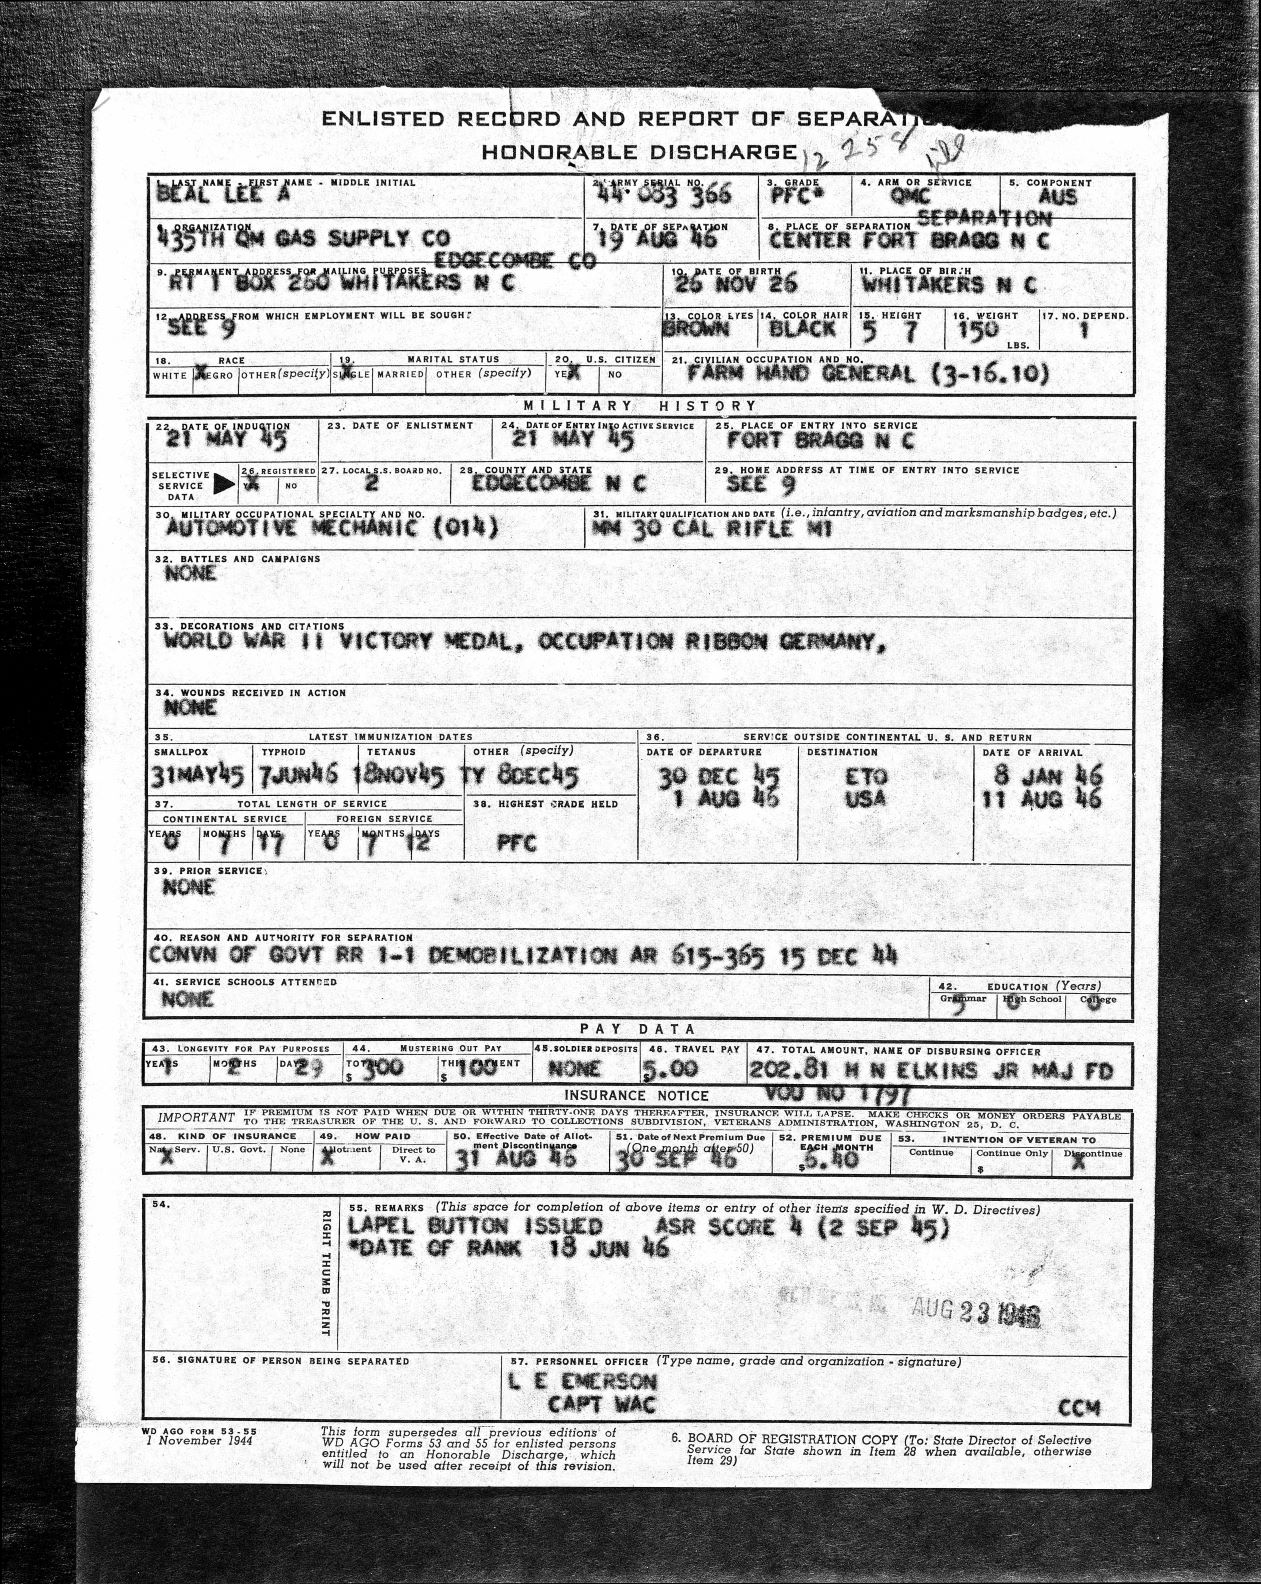 ENLISTED RECORD AND REPORT OF
HONORABLE DISCHARGE
12 258
1. LAST NAME - FIRST NAME - MIDDLE INITIAL
BEAL LEE A
2. ARMY SERIAL NO.
44 083 366
3. GRADE
PFC*
4. ARM OR SERVICE
QMC
5. COMPONENT
AUS
6. ORGANIZATION
435TH QM GAS SUPPLY CO
7. DATE OF SEPARATION
19 AUG 46
8. PLACE OF SEPARATION
SEPARATION
CENTER FORT BRAGG N C
9. PERMANENT ADDRESS FOR MAILING PURPOSES
EDGECOMBE CO
RT 1 BOX 260 WHITAKERS N C
10. DATE OF BIRTH
26 NOV 26
11. PLACE OF BIRTH
WHITAKERS N C
12. ADDRESS FROM WHICH EMPLOYMENT WILL BE SOUGHT
SEE 9
13. COLOR EYES
BROWN
14. COLOR HAIR
BLACK
15. HEIGHT
5 7
16. WEIGHT
150 LBS.
17. NO. DEPEND.
1
18. RACE
WHITE X NEGRO OTHER (specify)
19. MARITAL STATUS
X SINGLE MARRIED OTHER (specify)
20. U.S. CITIZEN
YES X NO
21. CIVILIAN OCCUPATION AND NO.
FARM HAND GENERAL (3-16.10)
MILITARY HISTORY
22. DATE OF INDUCTION
21 MAY 45
23. DATE OF ENLISTMENT
24. DATE OF ENTRY INTO ACTIVE SERVICE
21 MAY 45
25. PLACE OF ENTRY INTO SERVICE
FORT BRAGG N C
SELECTIVE
SERVICE
DATA
26. REGISTERED
YES X NO
27. LOCAL S.S. BOARD NO.
2
28. COUNTY AND STATE
EDGECOMBE N C
29. HOME ADDRESS AT TIME OF ENTRY INTO SERVICE
SEE 9
30. MILITARY OCCUPATIONAL SPECIALTY AND NO.
AUTOMOTIVE MECHANIC (014)
31. MILITARY QUALIFICATION AND DATE (i.e., infantry, aviation and marksmanship badges, etc.)
MM 30 CAL RIFLE M1
32. BATTLES AND CAMPAIGNS
NONE
33. DECORATIONS AND CITATIONS
WORLD WAR II VICTORY MEDAL, OCCUPATION RIBBON GERMANY,
34. WOUNDS RECEIVED IN ACTION
NONE
35. LATEST IMMUNIZATION DATES
SMALLPOX TYPHOID TETANUS OTHER (specify)
31MAY45 7JUN46 18NOV45 TY 8DEC45
36. SERVICE OUTSIDE CONTINENTAL U. S. AND RETURN
DATE OF DEPARTURE DESTINATION DATE OF ARRIVAL
30 DEC 45 ETO 8 JAN 46
1 AUG 46 USA 11 AUG 46
37. TOTAL LENGTH OF SERVICE
CONTINENTAL SERVICE FOREIGN SERVICE
YEARS MONTHS DAYS YEARS MONTHS DAYS
0 7 17 0 7 12
38. HIGHEST GRADE HELD
PFC
39. PRIOR SERVICE
NONE
40. REASON AND AUTHORITY FOR SEPARATION
CONVN OF GOVT RR 1-1 DEMOBILIZATION AR 615-365 15 DEC 44
41. SERVICE SCHOOLS ATTENDED
NONE
42. EDUCATION (Years)
Grammar High School College
5 0 0
PAY DATA
43. LONGEVITY FOR PAY PURPOSES
YEARS MONTHS DAYS
1 2 29
44. MUSTERING OUT PAY
TOTAL THIS PAYMENT
$ 300 $ 100
45. SOLDIER DEPOSITS
NONE
46. TRAVEL PAY
$ 5.00
47. TOTAL AMOUNT, NAME OF DISBURSING OFFICER
202.81 H N ELKINS JR MAJ FD
VOU NO 1797
INSURANCE NOTICE
IMPORTANT IF PREMIUM IS NOT PAID WHEN DUE OR WITHIN THIRTY-ONE DAYS THEREAFTER, INSURANCE WILL LAPSE. MAKE CHECKS OR MONEY ORDERS PAYABLE
TO THE TREASURER OF THE U. S. AND FORWARD TO COLLECTIONS SUBDIVISION, VETERANS ADMINISTRATION, WASHINGTON 25, D. C.
48. KIND OF INSURANCE
Nat. Serv. U.S. Govt. None
X
49. HOW PAID
Allotment Direct to V. A.
X
50. Effective Date of Allotment Discontinuance
31 AUG 46
51. Date of Next Premium Due
(One month after 50)
30 SEP 46
52. PREMIUM DUE
EACH MONTH
$ 6.40
53. INTENTION OF VETERAN TO
Continue Continue Only Discontinue
$ X
54.
RIGHT THUMB PRINT
55. REMARKS (This space for completion of above items or entry of other items specified in W. D. Directives)
LAPEL BUTTON ISSUED ASR SCORE 4 (2 SEP 45)
*DATE OF RANK 18 JUN 46
AUG 23 1946
56. SIGNATURE OF PERSON BEING SEPARATED
57. PERSONNEL OFFICER (Type name, grade and organization - signature)
L E EMERSON
CAPT WAC CCM
WD AGO FORM 53-55
1 November 1944
This form supersedes all previous editions of
WD AGO Forms 53 and 55 for enlisted persons
entitled to an Honorable Discharge, which
will not be used after receipt of this revision.
6. BOARD OF REGISTRATION COPY (To: State Director of Selective
Service for State shown in Item 28 when available, otherwise
Item 29)